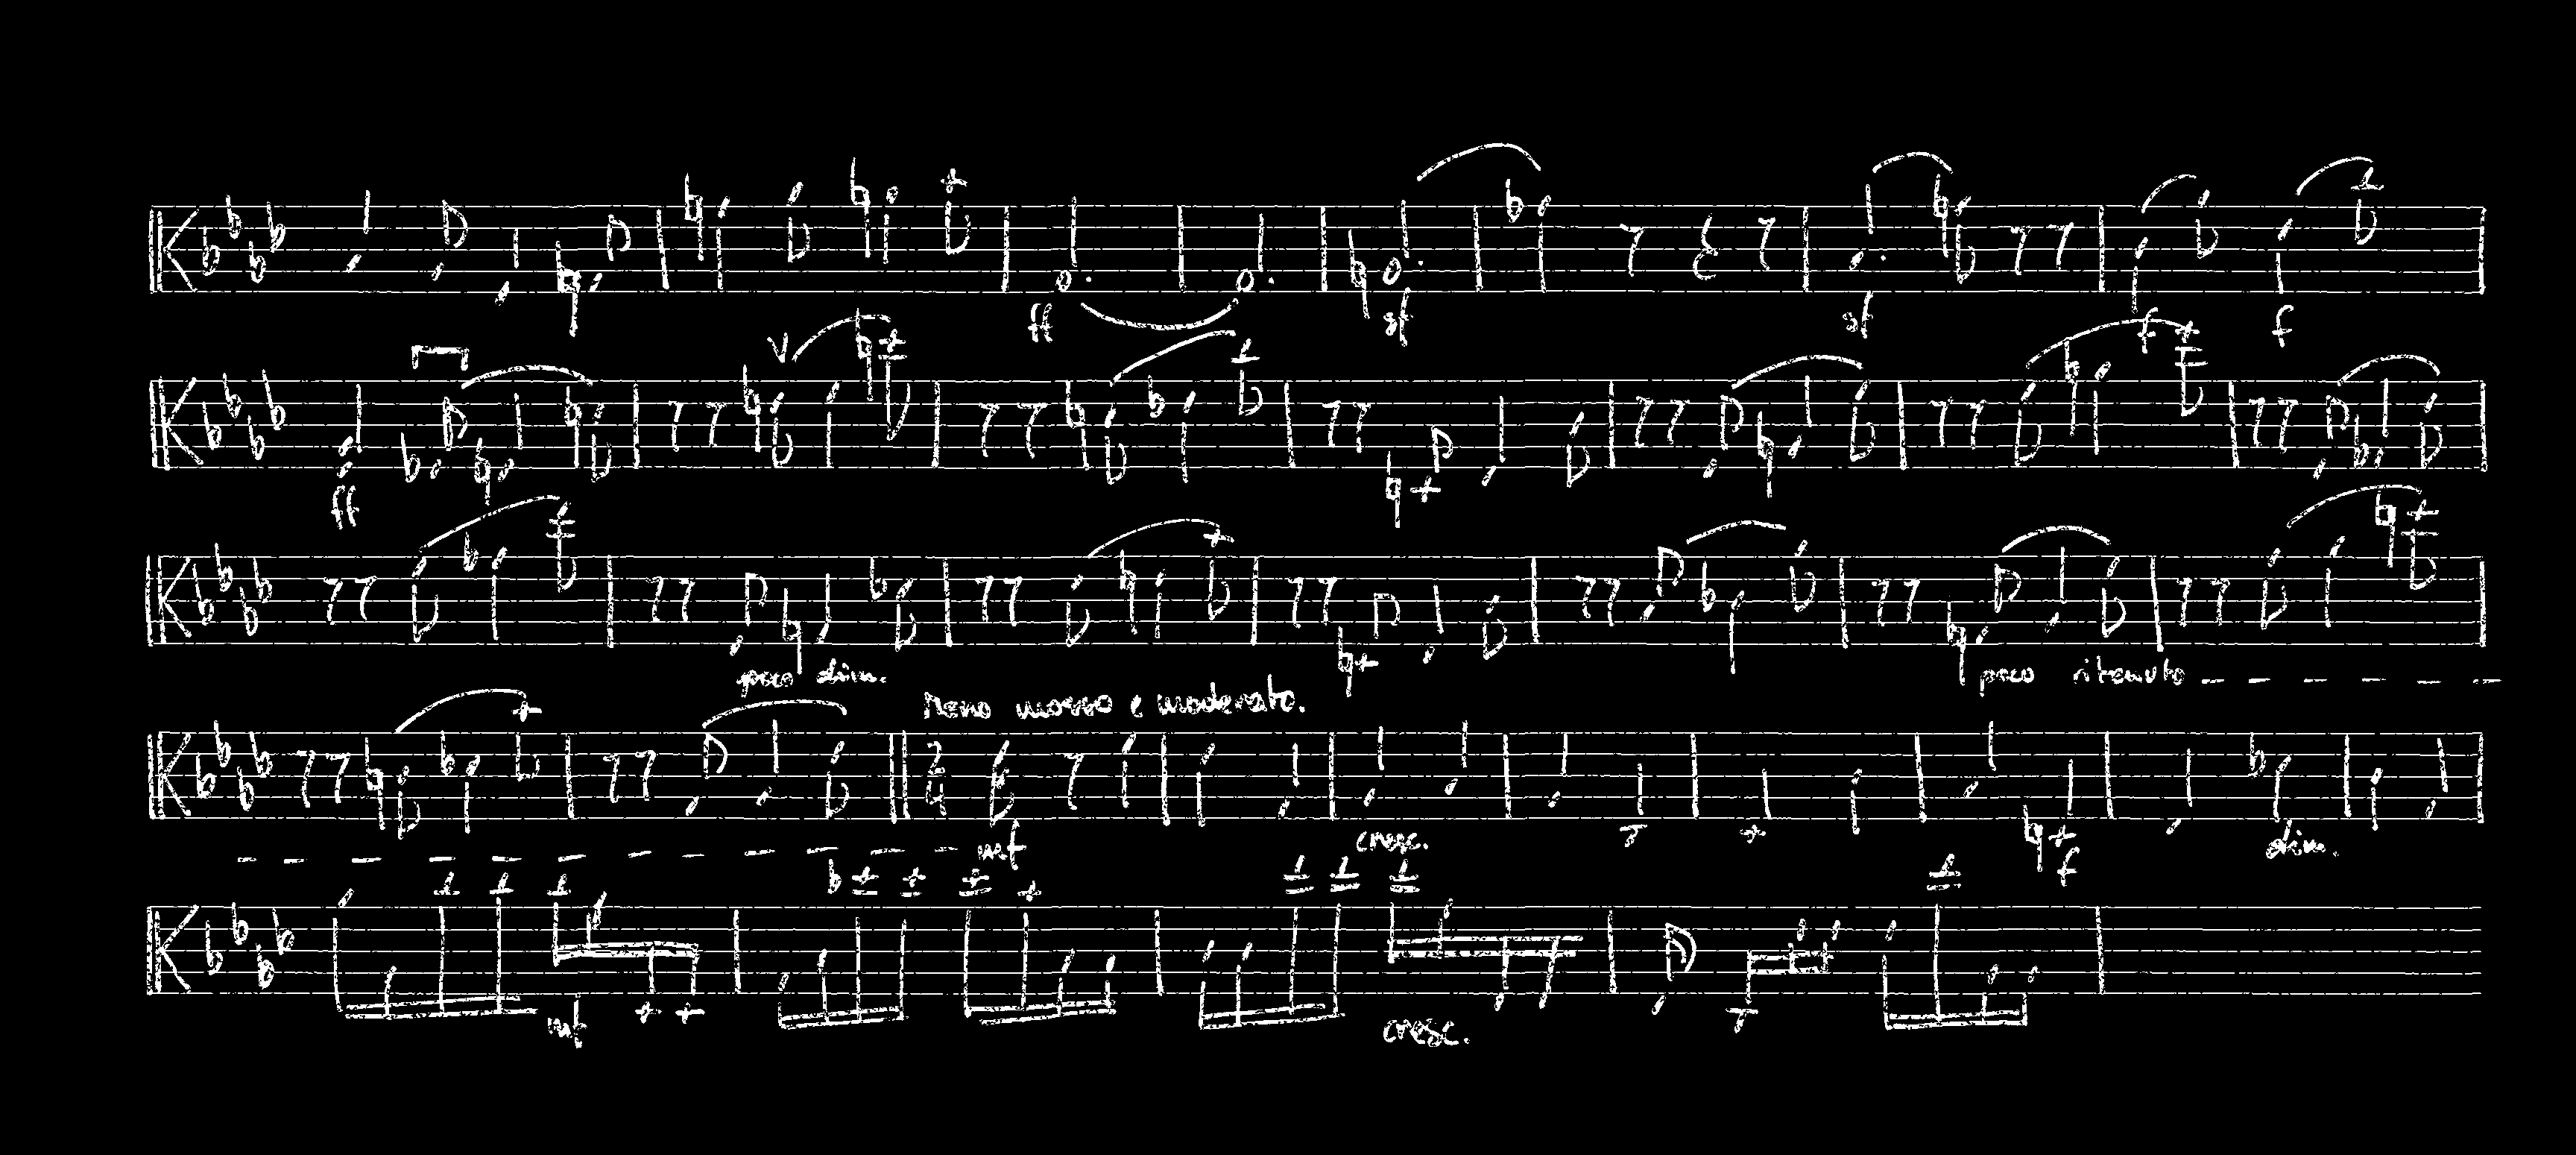 ff sf sf f f
V
ff
poco dim.
poco ritenuto
Meno mosso e moderato.
2/4
mf cresc. f dim.
mf cresc.